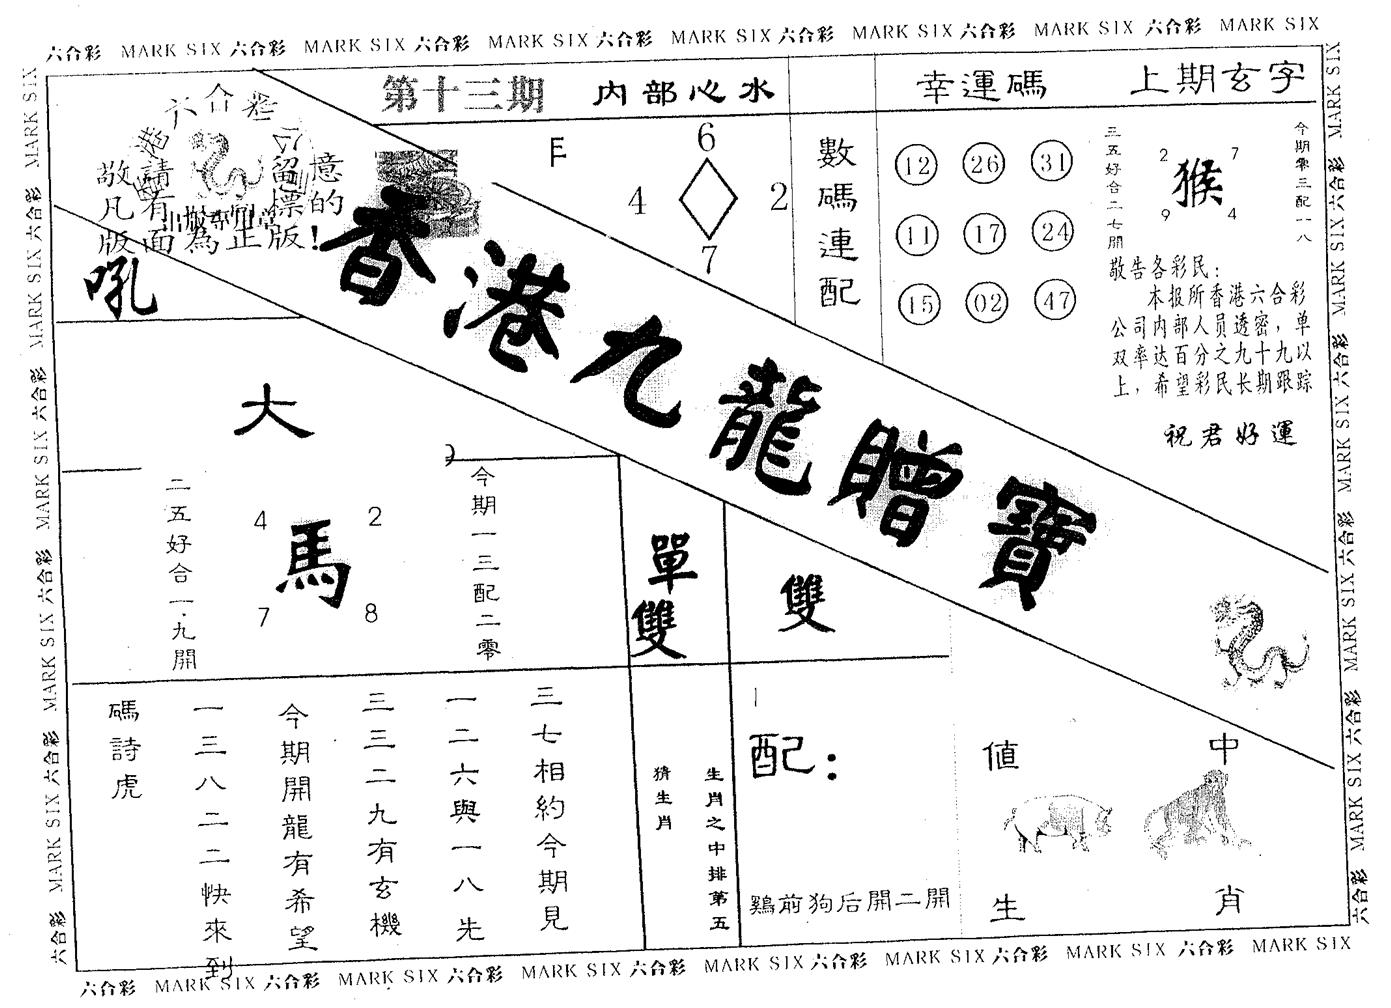 六合彩 MARK SIX 六合彩 MARK SIX 六合彩 MARK SIX 六合彩 MARK SIX 六合彩 MARK SIX 六合彩 MARK SIX 六合彩 MARK SIX
第十三期
内部心水
幸運碼
上期玄字
六合彩
敬請留意
凡有標的
版面為正版!
吼
6
4 2
7
數碼連配
12 26 31
11 17 24
15 02 47
三五好合二七開
2 7
猴
9 4
今期零三配一八
敬告各彩民:
本报所香港六合彩
公司内部人员透密,单
双率达百分之九十九以
上,希望彩民长期跟踪
祝君好運
香港九龍贈寶
大
二五好合一.九開
4 2
馬
7 8
今期一三配二零
單雙
雙
碼詩虎
一三八二二快來到
今期開龍有希望
三三二九有玄機
一二六與一八先
三七相約今期見
猜生肖
生肖之中排第五
配:
鷄前狗后開二開
值 中
生 肖
六合彩 MARK SIX 六合彩 MARK SIX 六合彩 MARK SIX 六合彩 MARK SIX 六合彩 MARK SIX 六合彩 MARK SIX 六合彩 MARK SIX
六合彩 MARK SIX 六合彩 MARK SIX 六合彩 MARK SIX 六合彩 MARK SIX 六合彩 MARK SIX
六合彩 MARK SIX 六合彩 MARK SIX 六合彩 MARK SIX 六合彩 MARK SIX 六合彩 MARK SIX